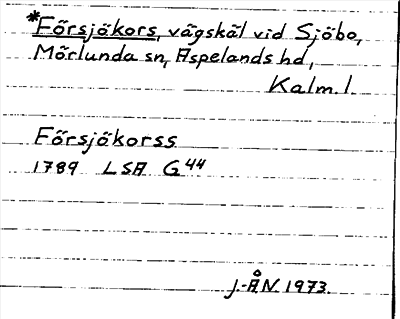 *Försjökors, vägskäl vid Sjöbo,
Mörlunda sn, Aspelands hd,
Kalm. l.
Försjökorss
1789 LSA G44
J.-Å.N. 1973.